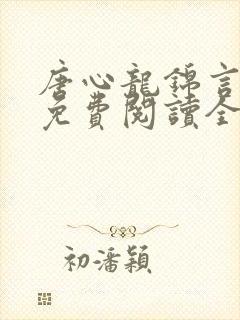 唐心龍錦言
免費閱讀全
初潘穎